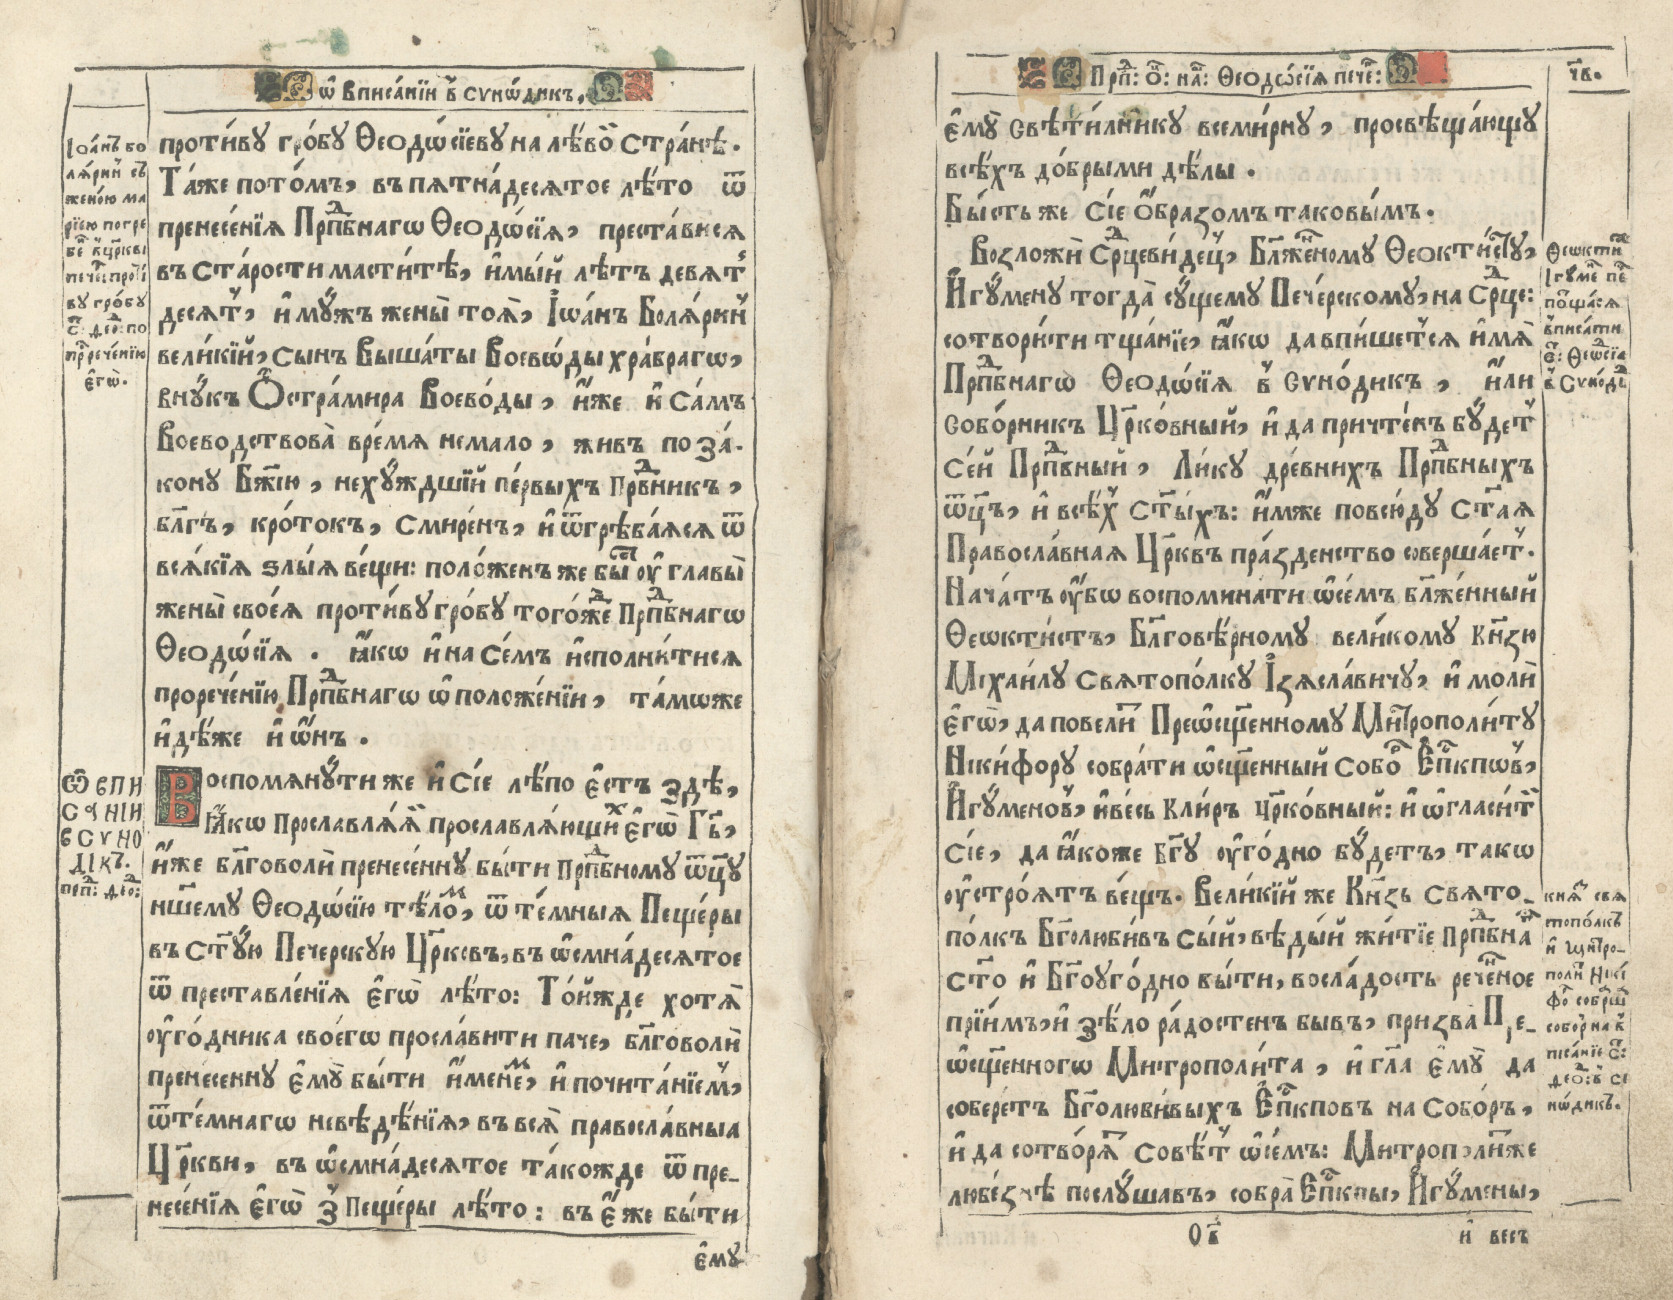 ѡ҆ Вписа́нїи в̾ сѵнѡ́дикъ,
Іѡа́нъ бо
ля́рин̾ съ
жено́ю ма
рїею погре
бе́ в̾цр҃кві
пече́: проті́
ву гро́бу
с҃: Ѳео́: по
прⷪ҇рече́нїю
є҆гѡ̀.
проти́ву гро́бу Ѳеодѡ́сїеву на лѣ́во странѣ̀.
Та́же пото́мъ, въ пятна́десятое лѣ́то ѿ
пренесе́нїя Прпⷣбнагѡ Ѳеодѡ́сїя, преста́вися
въ ста́рости масти́тѣ, и҆мы́й лѣ́тъ девят̾
десят̾, и҆ му́жъ жены̀ тоя̀, І҆ѡа́нъ Боля́рин̾
вели́кїй, сынъ Выша́ты Воевѡ́ды хра́брагѡ,
вну́къ Ѻ҆стра́мира Воево́ды, и҆́же и҆ са́мъ
Воеводствова̀ вре́мя немало, живъ по за́-
кону Бж҃їю, нехуждшїй пе́рвыхъ Прⷣвникъ,
бл҃гъ, кро́токъ, смире́нъ, и҆ ѿгрѣба́яся ѿ
вся́кїя ѕлы́я ве́щи: поло́женъ же бы́ ѹ҆ главы̀
жены̀ своея̀ проти́ву гро́бу того́жде Прпⷣбнагѡ
Ѳеодѡ́сїя. ꙗ҆́кѡ и҆ на се́мъ и҆спо́лнитися
проречéнїю Прпⷣбнагѡ ѡ҆ положе́нїи, та́мѡже
и҆дѣ́же и҆ ѡ҆́нъ.
Ѡ҆ впи
са́нїи
в сѵно
дікъ.
прпⷣ: Ѳео:
Воспомяну́ти же и҆ сїе лѣ́по є҆стъ здѣ̀,
ꙗ҆́кѡ прославля́ѧ прославля́ющихъ є҆гѡ̀ Гь҃,
и҆́же бл҃говолѝ пренесе́нну бы́ти прпⷣбному ѿц҃у
нш҃ему Ѳеодѡ́сїю тѣ́ломъ, ѿ те́мныя Пеще́ры
въ ст҃у́ю Печерскую Цр҃ковъ, въ ѡ҆смна́десятое
ѿ преставле́нїя є҆гѡ̀ лѣ́то: То́йжде хотя̀
ѹ҆го́дника своегѡ̀ просла́вити паче, бл҃говолѝ
пренесенну є҆мꙋ̀ бы́ти и҆́менемъ, и҆ почита́нїем̾,
ѿтéмнагѡ невѣ́дѣнїя, въ вся̀ правосла́вныя
Цр҃кви, въ ѡ҆смна́десятое та́кожде ѿ пре-
несе́нїя є҆гѡ̀ з̾ Пеще́ры лѣ́то: въ є҆́же бы́ти
є҆му̀
Прпⷣ: Ѻ҃: на҃: Ѳеодѡ́сїя пече́:
ч҃в.
є҆му̀ свѣти́лнику всеми́рну, просвѣща́ющу
всѣ́хъ до́брыми дѣ́лы.
Бы́сть же сїе ѻ҆́бразомъ таковы́мъ.
Возложѝ Срⷣцеви́дец̾, Бл҃же́нному Ѳеокти́сту,
И҆гу́мену тогда̀ су́щему Пече́рскому, на срⷣце:
сотвори́ти тща́нїе, ꙗ҆́кѡ да впи́шется и҆́мя
Прпⷣбнагѡ Ѳеодѡ́сїя в̾ сѵно́дикъ, и҆́ли
собо́рникъ Цр҃ко́вный, и҆ да причте́нъ бу́дет̾
се́й Прпⷣбный, Ли́ку дре́внихъ Прпⷣбныхъ
ѿц҃ъ, и҆ всѣ́х̾ ст҃ы́хъ: и҆́мже повсю́ду ст҃ая
Правосла́вная Цр҃квъ пра́зденство соверша́ет̾.
Нача́тъ ѹ҆́бо воспомина́ти ѡ҆се́мъ бл҃же́нный
Ѳеѡкти́стъ, Бл҃говѣ́рному вели́кому кн҃зю
Міхаи́лу Святопо́лку І҆зясла́вичу, и҆ молѝ
є҆гѡ̀, да повели́т Преѡ҆сщ҃енному Митрополи́ту
Никифору собра́ти ѡ҆сщ҃енный собо́ Е҆пк҃пѡв̾,
И҆гу́менов̾, и҆ ве́сь кли́ръ цр҃ко́вный: и҆ ѡ҆гласи́т
сїе, да ꙗ҆́коже Бг҃у ѹ҆го́дно бу́детъ, такѡ
ѹ҆стро́ятъ ве́щъ. Вели́кїй же Кн҃зь свято-
по́лкъ Бг҃олюби́въ сы́й, вѣ́дый жи́тїе Прпⷣбнагѡ
ст҃о и҆ Бг҃оуго́дно бы́ти, восла́дость рече́нное
прїи́мъ, и҆ зѣ́ло ра́достенъ бывъ, призва̀ Пре-
ѡ҆сщ҃енногѡ Митрополи́та, и҆ гл҃а є҆му̀ да
собере́тъ Бг҃олюби́выхъ Е҆пк҃повъ на собо́ръ,
и҆ да сотво́рят совѣ́т̾ ѡ҆се́мъ: Митрополи́тже
любе́знѣ послу́шавъ, собра̀ Е҆пк҃пы, И҆гу́мены,
Ѳеѡктї
І҆гу́ме́ пе
пощ҃а́ся
в̾писа́ти
с҃: Ѳеѡⷣсїя
в̾ сѵно́дї
кня́ свя
тополкъ
и҆ Митро-
поли́ Нікі
фо́ собраш
соборна в̾
писа́нїе с҃:
Ѳео: в̾ сі
нѡ́дикъ.
Ов҃
и҆ весъ